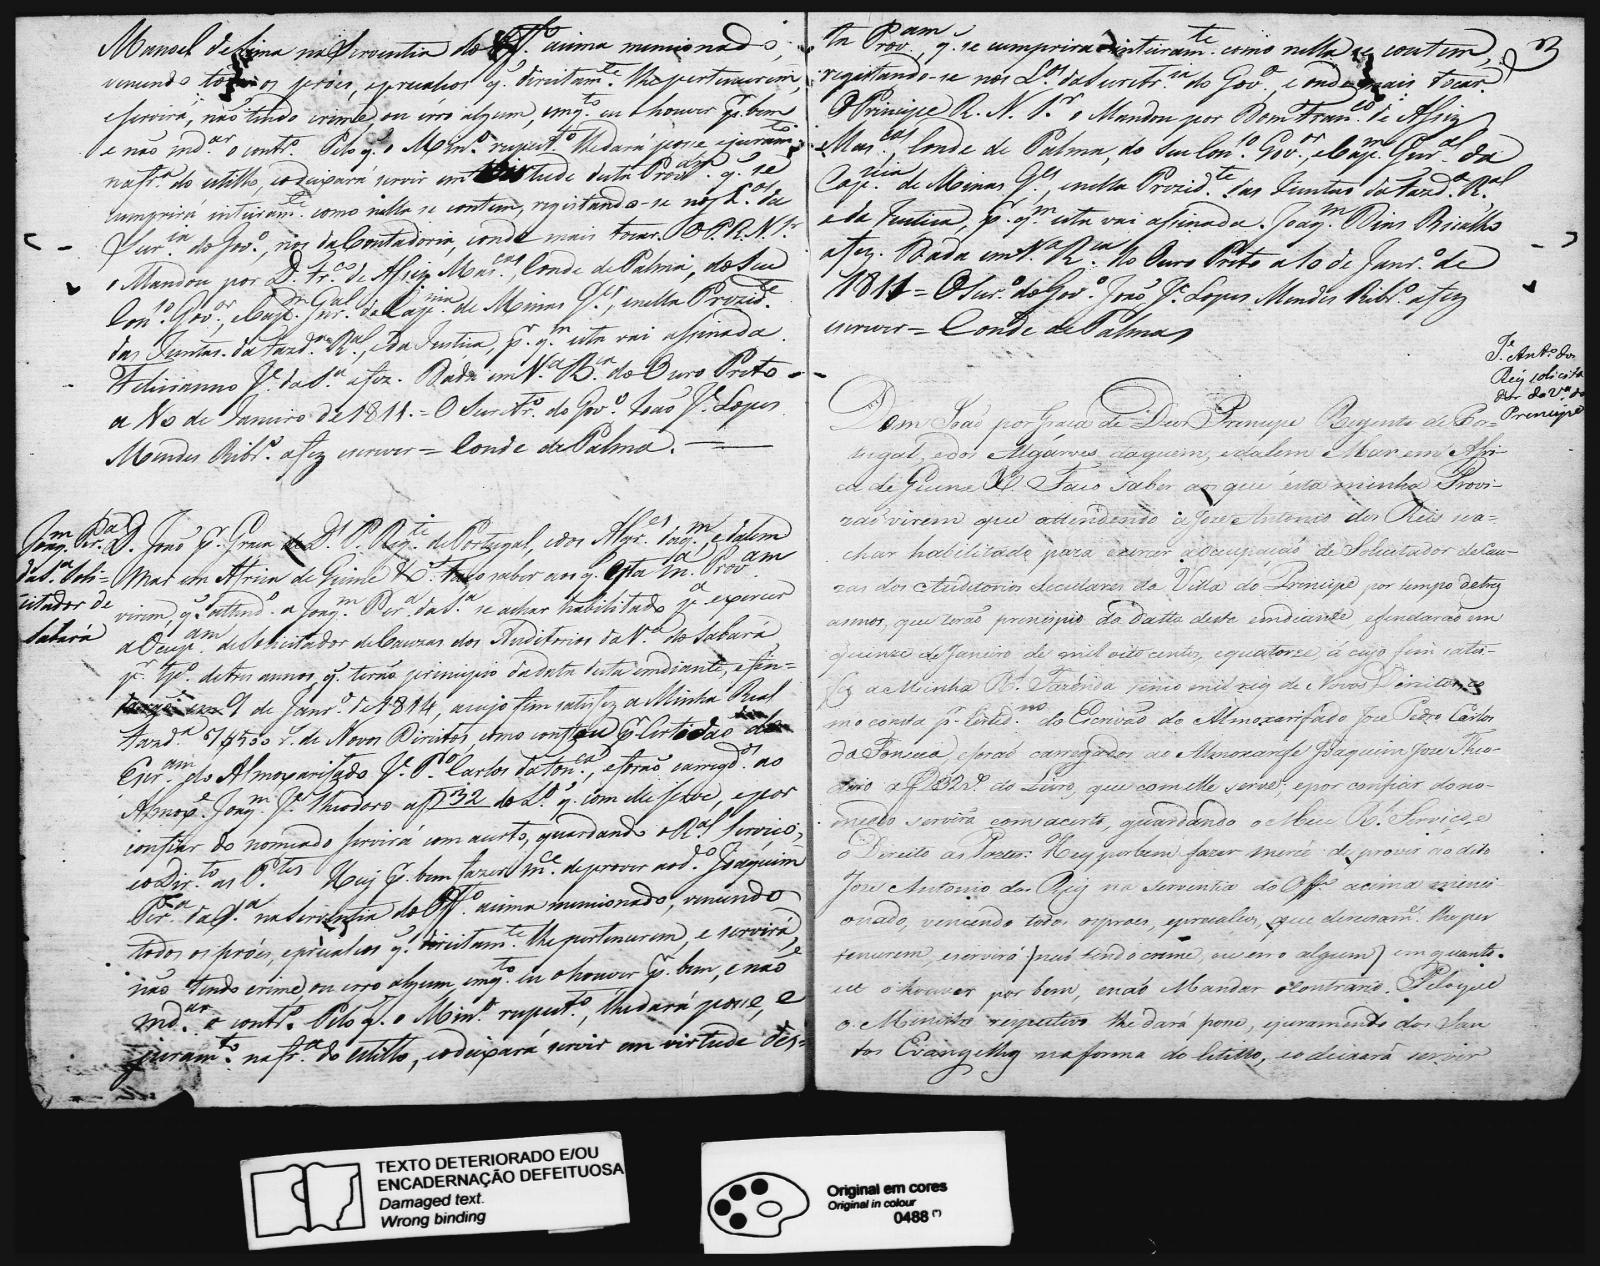 Manoel de Lima na Serventia do Off.º asima mencionado,
vencendo todos os próes, e precalsos q. direitam.te lhe pertencerem,
e servirá, não tendo crime, ou érro algum, emq.to eu o houver p.r bem
e não md.ar o contr.º Pelo q. o Min.º respect.º lhe dará posse, e juram.to
na fr.ª do estillo, e o deixará servir em virtude desta Prov.am q. se
cumprirá inteiram.te como nella se contem, registando-se nos L.os da
Secr.ia do Gov.º, nos da Contadoria, e onde mais tocar. O P. R. N. S.r
o Mandou por D. Fr.co de Assiz Mas.cas Conde de Palma, do seu
Con.º Gov.or, e Cap.m Gen.al da Cap.nia de Minas G.es, e nella Prezid.e
das Juntas da Fazd.ª R.al, e da Justiça, p.r q.m esta vai assinada.
Felicianno J.e da S.ª a fez. Dada em V.ª R.ca do Ouro Preto
a 10 de Janeiro de 1811. = O Secret.ro do Gov.º João J.e Lopes
Mendes Ribr.º a fez escrever = Conde de Palma.
Joaq.m Per.ª
da S.ª Soli=
citador de
Sabará
D. João p.r Graça de D.s P. Reg.te de Portugal, e dos Alg.es daq.m, e dalem
Mar em Africa de Guiné &.ª Faço saber aos q. esta m. Prov.am
virem, q. attend.º a Joaq.m Per.ª da S.ª se achar habilitado p.ª exercer
a Ocup.am de Solicitador de Cauzas dos Auditorios da V.ª do Sabará
p.r tp.º de tres annos, q. terão principio da data desta em diante, e fin=
9 de Janr.º de 1814, a cujo fim satisfez a Minha Real
Fazd.ª 6$500 r.s de Novos Direitos, como constou p.r Certidão do
Escr.am do Almoxarifado J.e P.º Carlos da Fon.ca, e forão carregd.os ao
Almox.e Joaq.m J.e Theodoro a f 132 do L.º q. com elle serve, e por
confiar do nomeado servirá com acerto, guardando o R.al Serviço,
e o Dir.to as P.tes Hey p.r bem fazer m.ce de prover ao d.º Joaquim
Per.ª da S.ª na Serventia do Off.º asima mencionado, vencendo
todos os próes, e precalsos q. direitam.te lhe pertencerem, e servirá,
não tendo crime, ou erro algum, emq.to eu o houver p.r bem, e não
md.ar o contr.º Pelo q. o Min.º respect.º, lhe dará posse, e
juram.to na fr.ª do estillo, e o deixará servir em virtude des=
ta Prov.am q. se cumprirá inteiram.te como nella se contem,
registando-se nos L.os da Secretr.ia do Gov.º, e onde mais tocar.
O Principe R. N. S.r o Mandou por Dom Fran.co de Assiz
Mas.cas Conde de Palma, do seu Con.º Gov.or, e Cap.m Gen.al da
Cap.nia de Minas G.es, e nella Prezid.te das Juntas da Fazd.ª R.al
e da Justiça, p.r q.m esta vai assinada. Joaq.m Dias Bicalho
a fez. Dada em V.ª R.ca do Ouro Preto a 10 de Janr.º de
1811 = O Secr.º do Gov.º João J.e Lopes Mendes Ribr.º a fez
escrever = Conde de Palma
J.e Ant.º dos
Reÿs solicita
dor da V.ª do
Principe
Dom João por Graça de Deos Principe Regente de Por-
tugal, e dos Algarves, daquem, e dalem Mar em Afri-
ca de Guiné &.ª Faço saber aos que ésta minha Provi-
zaõ virem que attendendo a Joze Antonio dos Reis se a=
char habilitado para exercer a occupaçaõ de Solicitador de Cau-
zas dos Auditorios Seculares da Villa do Principe por tempo de tres
annos, que teraõ principio da datta desta em diante, e findaraõ em
quinze de Janeiro de mil oito centos, e quatorze á cujo fim satis-
fez a Minha R.l Fazenda sinco mil reis de Novos Direitos, co
mo consta p.r Certid.m do Escrivão do Almoxarifado Joze Pedro Carlos
da Fonceca, e foraõ carregados ao Almoxarife Joaquim Joze Theo-
doro a f 132 v.e do Livro, que com elle serve; e por confiar do no-
meado servirá com acerto, guardando o Meu R.l Serviço, e
o Direito as Partes: Hey por bem fazer mercê de prover ao dito
Joze Antonio dos Reis na serventia do Off.º acima menci-
onado, vencendo todos os proes, e precalsos, que direitam.e lhe per
tencerem, e servirá (naõ tendo crime, ou erro algum) em quanto
eu o houver por bem, e naõ Mandar o contrario. Pelo que
o Ministro respectivo lhe dará posse, e juramento dos San
tos Evangelhos na forma do estillo, e o deixará servir
TEXTO DETERIORADO E/OU
ENCADERNAÇÃO DEFEITUOSA
Damaged text.
Wrong binding
Original em cores
Original in colour
0488 (*)